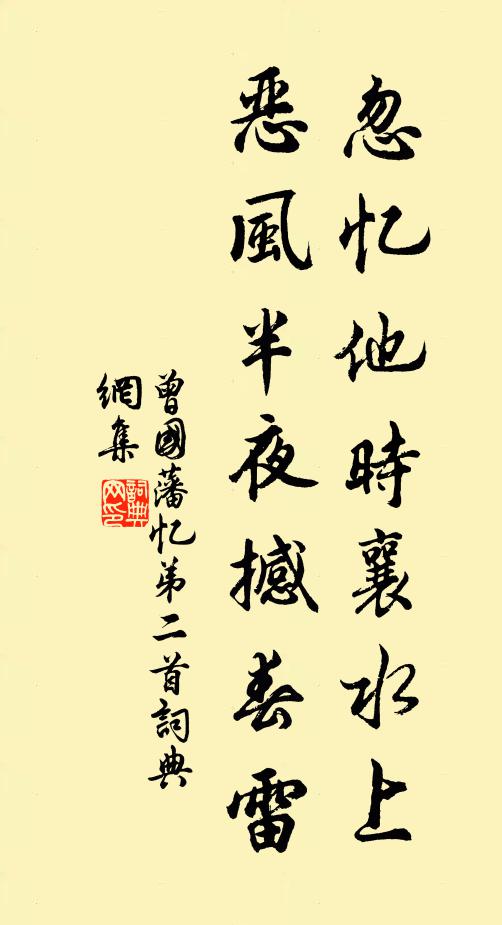 忽忆他時襄水上
惡風半夜撼春雷
曾國藩忆弟二首詞典
網集
詞典
网印